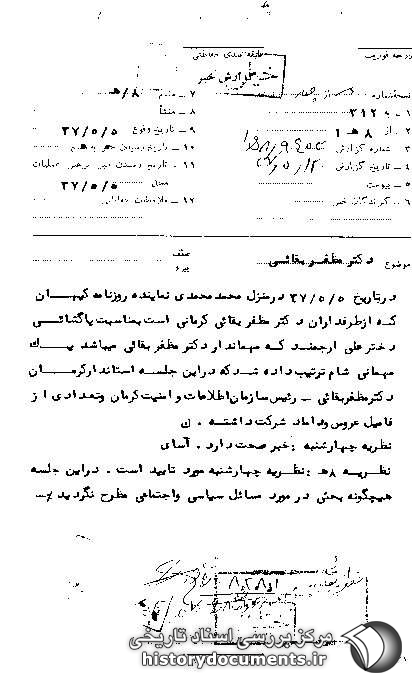 درجه فوریت
طبقه بندی حفاظتی
گزارش خبر
نسخه شماره
۱ - به ۳۱۲
۲ - از ۸ هـ ۱
۳ - شماره گزارش
۴ - تاریخ گزارش
۵ - پیوست
۶ - گیرندگان خبر
۷ - منبع ۸/هـ
۸ - منشأ
۹ - تاریخ وقوع ۳۷/۵/۵
۱۰ - تاریخ رسیدن خبر به منبع
۱۱ - تاریخ رسیدن خبر برهبر عملیات
محل ۳۷/۵/۵
۱۲ - ملاحظات حفاظتی
موضوع دکتر مظفر بقائی
در تاریخ ۳۷/۵/۵ در منزل محمد محمدی نماینده روزنامه کیهان
که از طرفداران دکتر مظفر بقائی کرمانی است بمناسبت پاگشائی
دختر علی ارجمند که میهماندار دکتر مظفر بقائی میباشد یک
مهمانی شام ترتیب داده شد که در این جلسه استاندار کرمان
دکتر مظفر بقائی - رئیس سازمان اطلاعات و امنیت کرمان و تعدادی از
فامیل عروس و داماد شرکت داشتند .
نظریه چهارشنبه : خبر صحت دارد . آسای
نظریه ۸ هـ : نظریه چهارشنبه مورد تایید است . در این جلسه
هیچگونه بحثی در مورد مسائل سیاسی و اجتماعی مطرح نگردید
مرکز بررسی اسناد تاریخی
historydocuments.ir